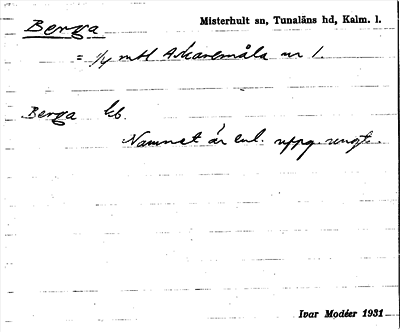 Berga
Misterhult sn, Tunaläns hd, Kalm. l.
= 1/4 mtl Askaremåla nr 1.
Berga lb.
Namnet är enl. uppg. ungt.
Ivar Modéer 1931